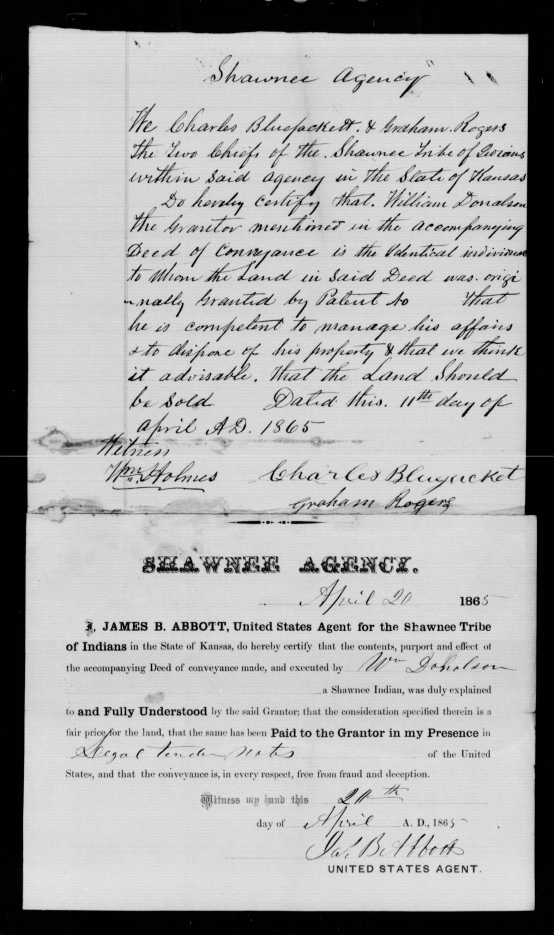 Shawnee Agency
We Charles Bluejackett. & Graham. Rogers
the Two Chiefs of the. Shawnee Tribe of Indians
within said agency in the State of Kansas
Do hereby certify that. William Donalson
the Grantor mentioned in the accompanying
Deed of Conveyance is the Identical individual
to Whom the Land in said Deed was. origi
nally Granted by Patent to that
he is competent to manage his affairs
& to dispose of his property & that we think
it advisable. that the Land Should
be Sold Dated this. 11th day of
April A.D. 1865
Witness
Wm. Holmes Charles Bluejacket
Graham Rogers
SHAWNEE AGENCY.
April 20 1865
I, JAMES B. ABBOTT, United States Agent for the Shawnee Tribe
of Indians in the State of Kansas, do hereby certify that the contents, purport and effect of
the accompanying Deed of conveyance made, and executed by Wm Donalson
a Shawnee Indian, was duly explained
to and Fully Understood by the said Grantor; that the consideration specified therein is a
fair price for the land, that the same has been Paid to the Grantor in my Presence in
Legal tender notes of the United
States, and that the conveyance is, in every respect, free from fraud and deception.
Witness my hand this 20th
day of April A. D., 1865
Jas. B Abbott
UNITED STATES AGENT.